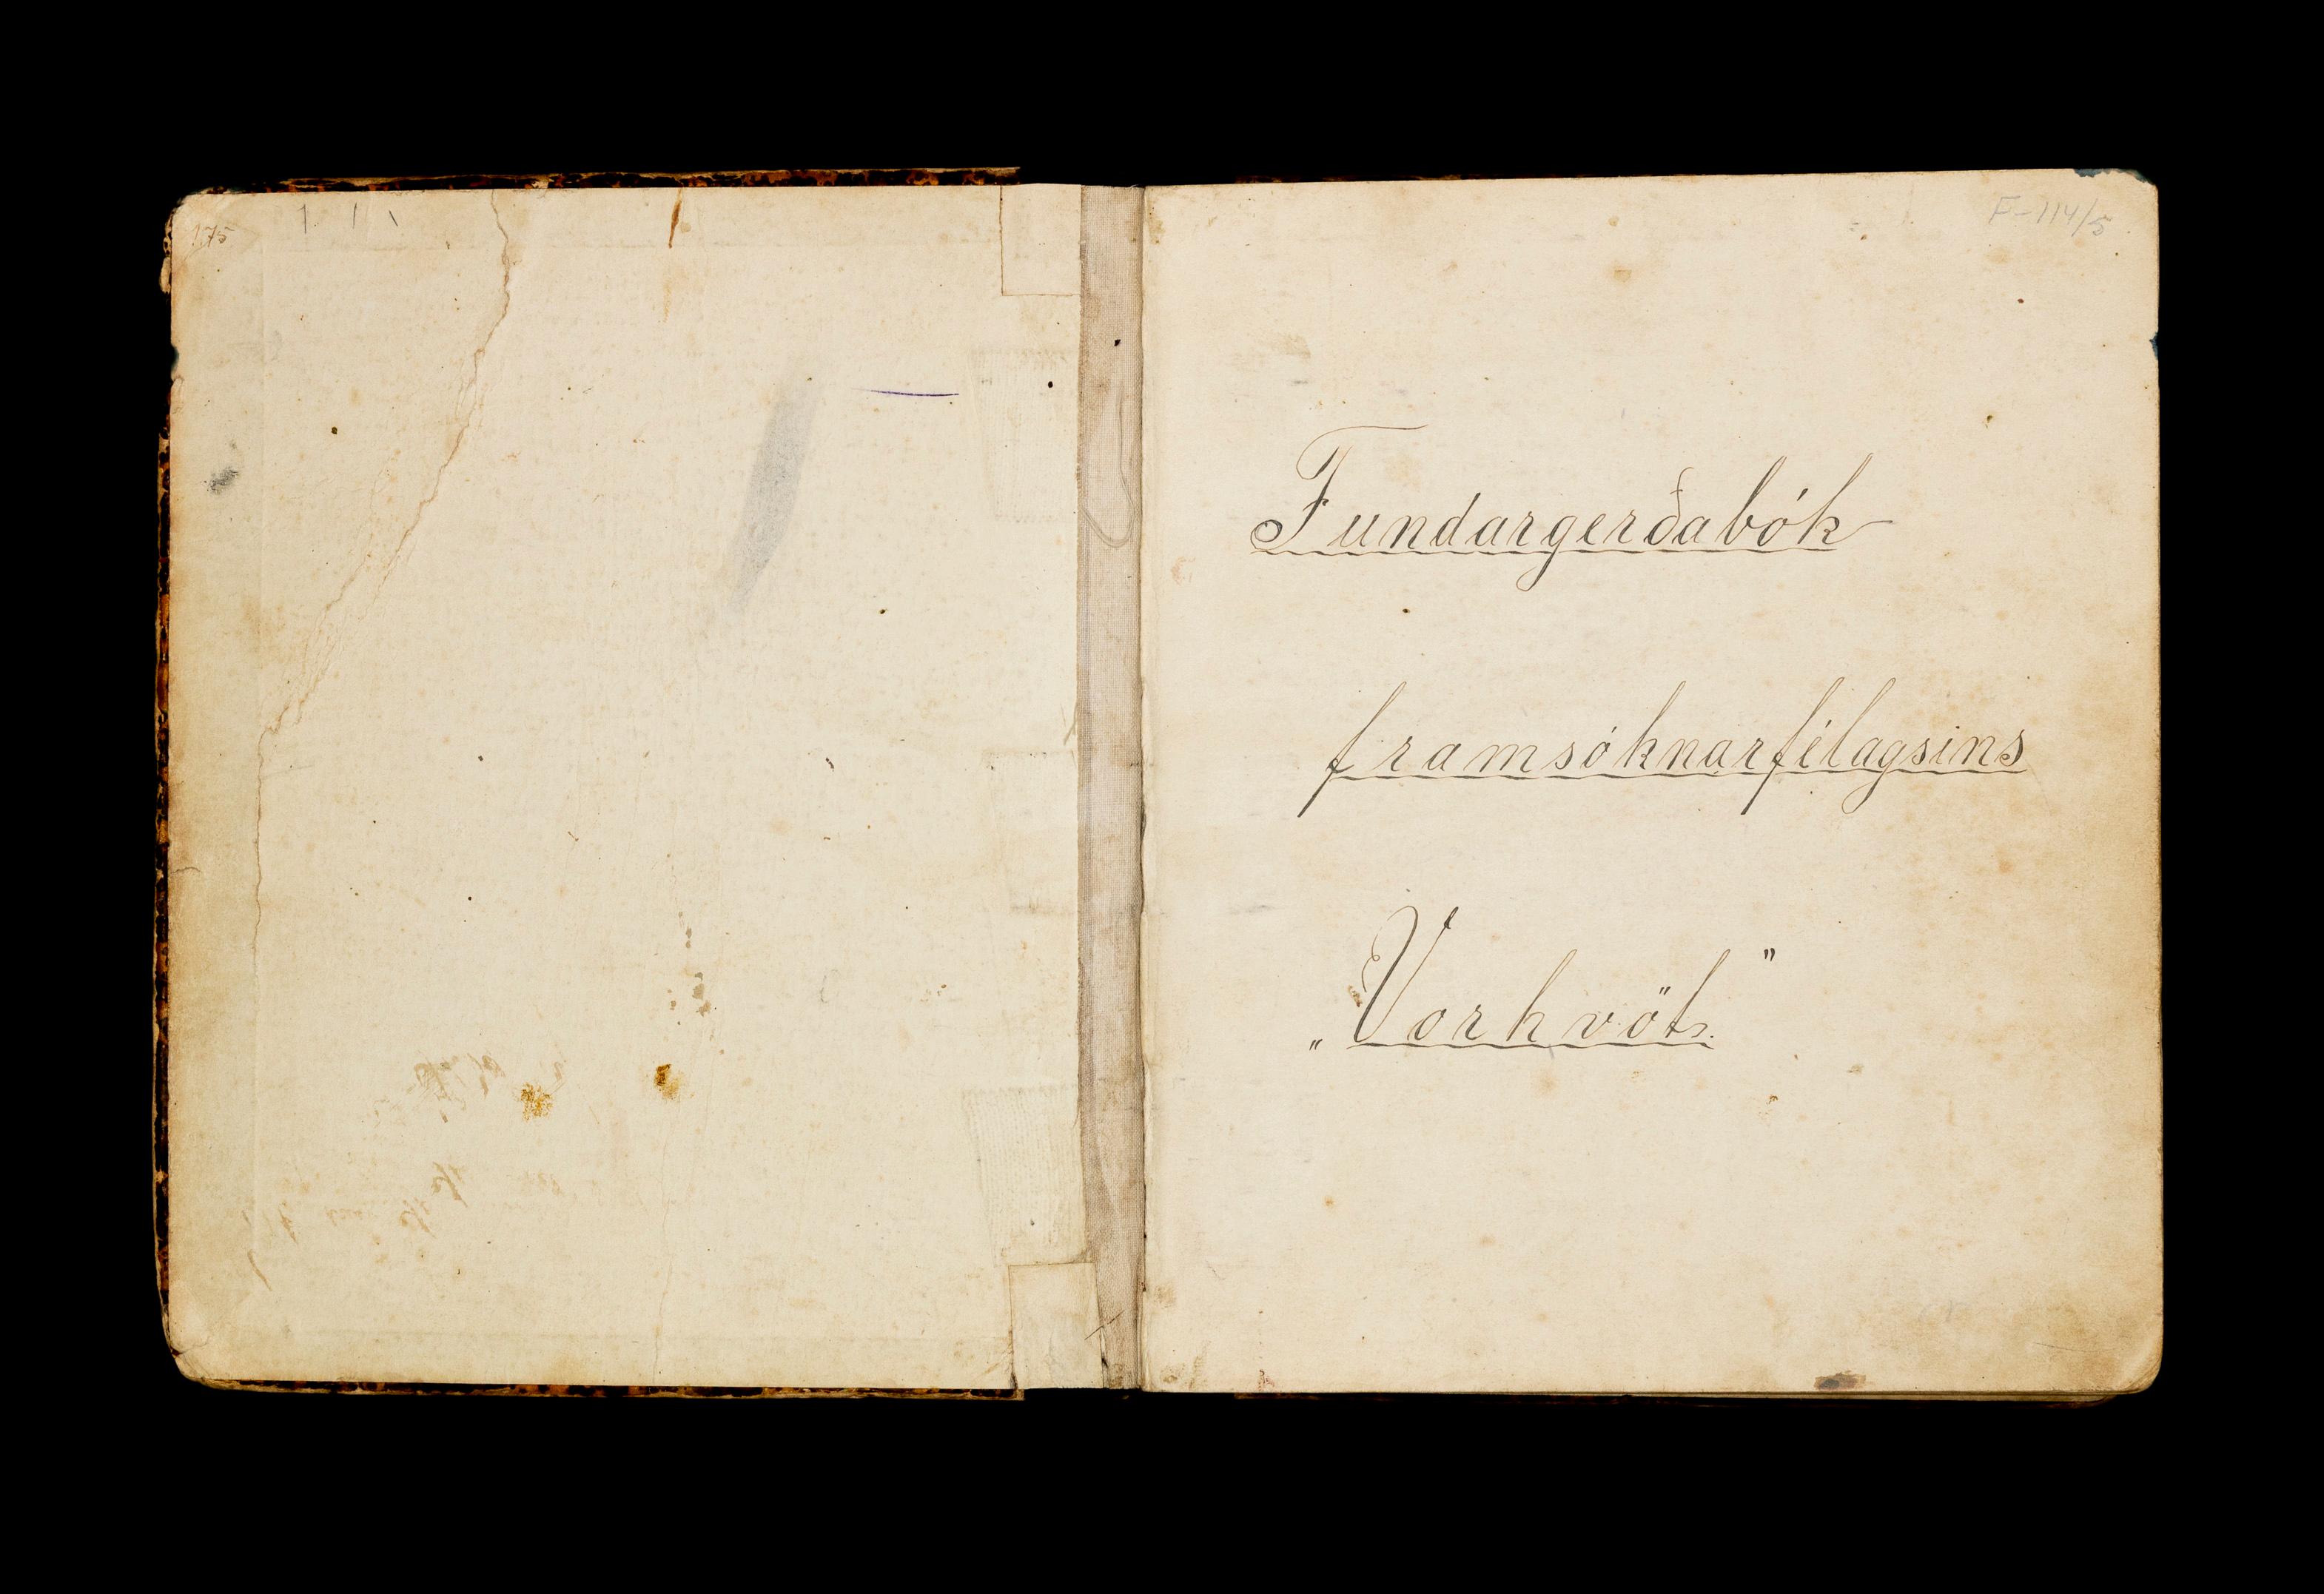 175
F-114/5
Fundargerðabók
framsóknarfélagsins
„Vorhvöt."